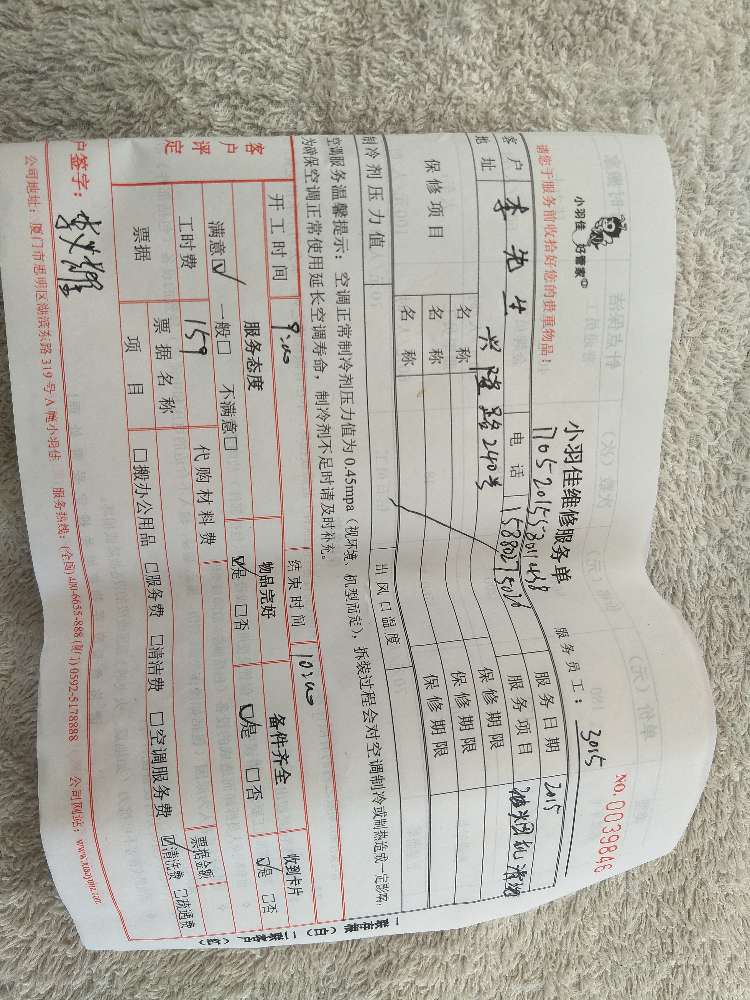 小羽佳 好管家
小羽佳维修服务单
NO.0039846
服务员工：3015
请您于服务前收拾好您的贵重物品！
客户 李先生 电话 服务日期 2015
地址 兴隆路240号 服务项目
保修项目 名称 保修期限
名称 保修期限
名称 保修期限
制冷剂压力值 出风口温度
空调服务温馨提示：空调正常制冷剂压力值为0.45mpa（视环境、机型而定），拆装过程会对空调制冷或制热造成一定影响，
为确保空调正常使用延长空调寿命，制冷剂不足时请及时补充。
开工时间 9:00 结束时间 10:00
客户评定 服务态度 物品完好 备件齐全 收到卡片
满意☑ 一般□ 不满意□ ☑是 □否 ☑是 □否 ☑是 □否
工时费 159 代购材料费 票据金额
票据 票据名称 ☑清洁费 □疏通费
项目 □搬办公用品 □服务费 □清洁费 □空调服务费
户签字：
公司地址：厦门市思明区湖滨东路319号A幢小羽佳 服务热线：(全国)400-6655-888(厦门)0592-5178888 公司网站：